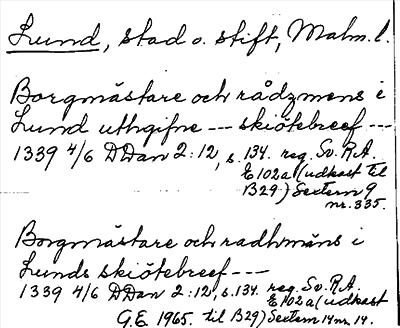 Lund, stad o. stift, Malm. l.
Borgmästare och rådzmens i
Lund uthgifne --- skiötebreef ---
1339 4/6 DDan 2:12, s. 134. reg. Sv. R.A.
E 102a (udkast til
B29) Sextern 9
nr. 335.
Borgmästare och radhmäns i
Lunds skiötebreef ---
1339 4/6 DDan 2:12, s. 134. reg. Sv. R.A.
E 102a (udkast
G.E. 1965. til B29) Sextern 14 nr. 14.